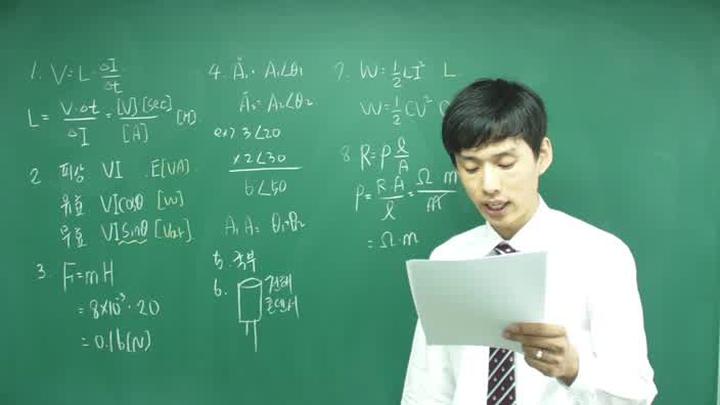 1. V=L ΔI/Δt
L = V·Δt/ΔI = [V][sec]/[A] [H]
2 피상 VI E[VA]
유효 VIcosθ [W]
무효 VIsinθ [Var]
3. F=mH
= 8×10⁻³ · 20
= 0.16(N)
4. Ȧ₁ = A₁∠θ₁
Ȧ₂ = A₂∠θ₂
ex) 3∠20
×2∠30
6∠50
A₁A₂ θ₁ θ₂
5. 국부
6. 전해
콘덴서
7. W=½LI² L
W=½CV² C
8 R=ρ l/A
ρ = R·A/l = Ω m²/m
= Ω·m